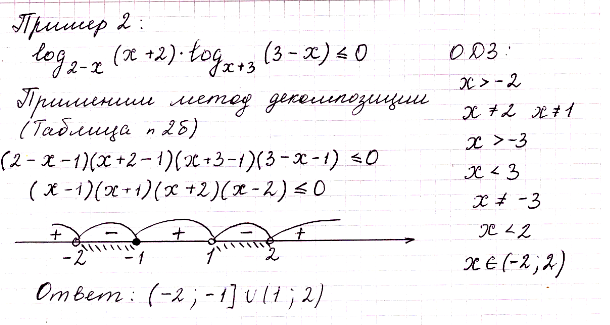 Пример 2:
log₂₋ₓ (x+2)·logₓ₊₃ (3-x) ≤ 0
Применим метод декомпозиции
(Таблица п 2б)
(2-x-1)(x+2-1)(x+3-1)(3-x-1) ≤0
(x-1)(x+1)(x+2)(x-2) ≤ 0
+ - + - +
-2 -1 1 2
Ответ: (-2; -1] ∪ (1; 2)
ОДЗ:
x > -2
x ≠ 2 x ≠ 1
x > -3
x < 3
x ≠ -3
x < 2
x ∈ (-2; 2)